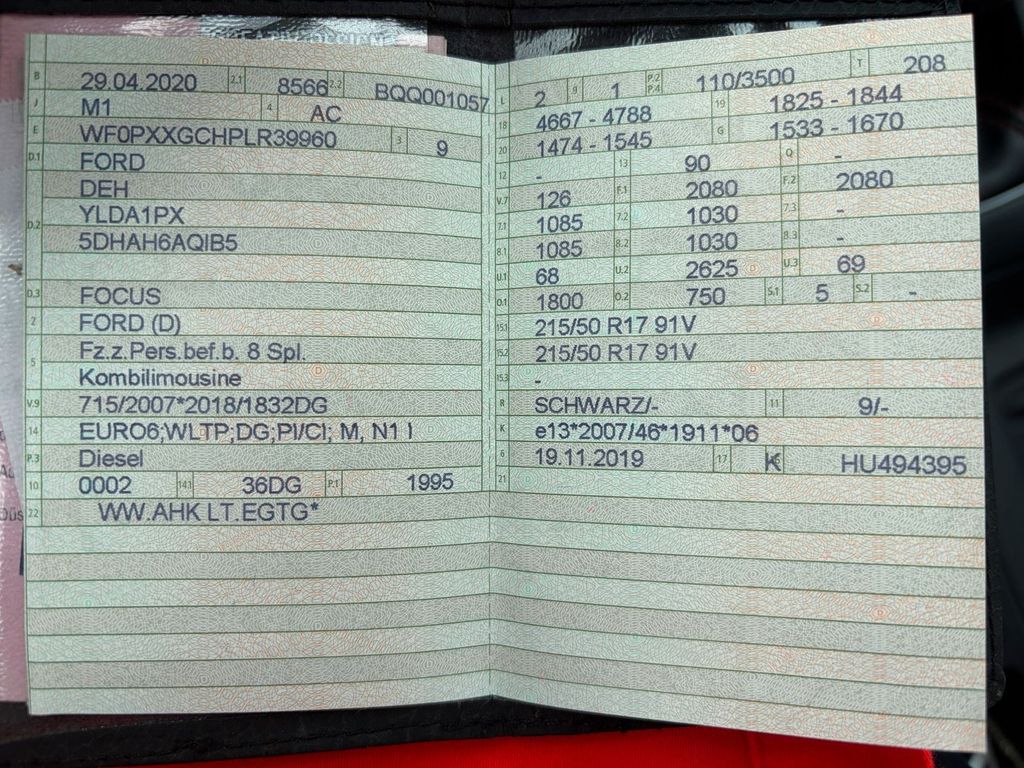 B 29.04.2020 2.1 8566 2.2 BQQ001057
J M1 4 AC
E WF0PXXGCHPLR39960 3 9
D.1 FORD
DEH
D.2 YLDA1PX
5DHAH6AQIB5
D.3 FOCUS
2 FORD (D)
5 Fz.z.Pers.bef.b. 8 Spl.
Kombilimousine
V.9 715/2007*2018/1832DG
14 EURO6;WLTP;DG;PI/CI; M, N1 I
P.3 Diesel
10 0002 14.1 36DG P.1 1995
22 WW.AHK LT.EGTG*
L 2 9 1 P.2 P.4 110/3500 T 208
18 4667 - 4788 19 1825 - 1844
20 1474 - 1545 G 1533 - 1670
12 - 13 90 Q -
V.7 126 F.1 2080 F.2 2080
7.1 1085 7.2 1030 7.3 -
8.1 1085 8.2 1030 8.3 -
U.1 68 U.2 2625 U.3 69
O.1 1800 O.2 750 S.1 5 S.2 -
15.1 215/50 R17 91V
15.2 215/50 R17 91V
15.3 -
R SCHWARZ/- 11 9/-
K e13*2007/46*1911*06
6 19.11.2019 17 K HU494395
21